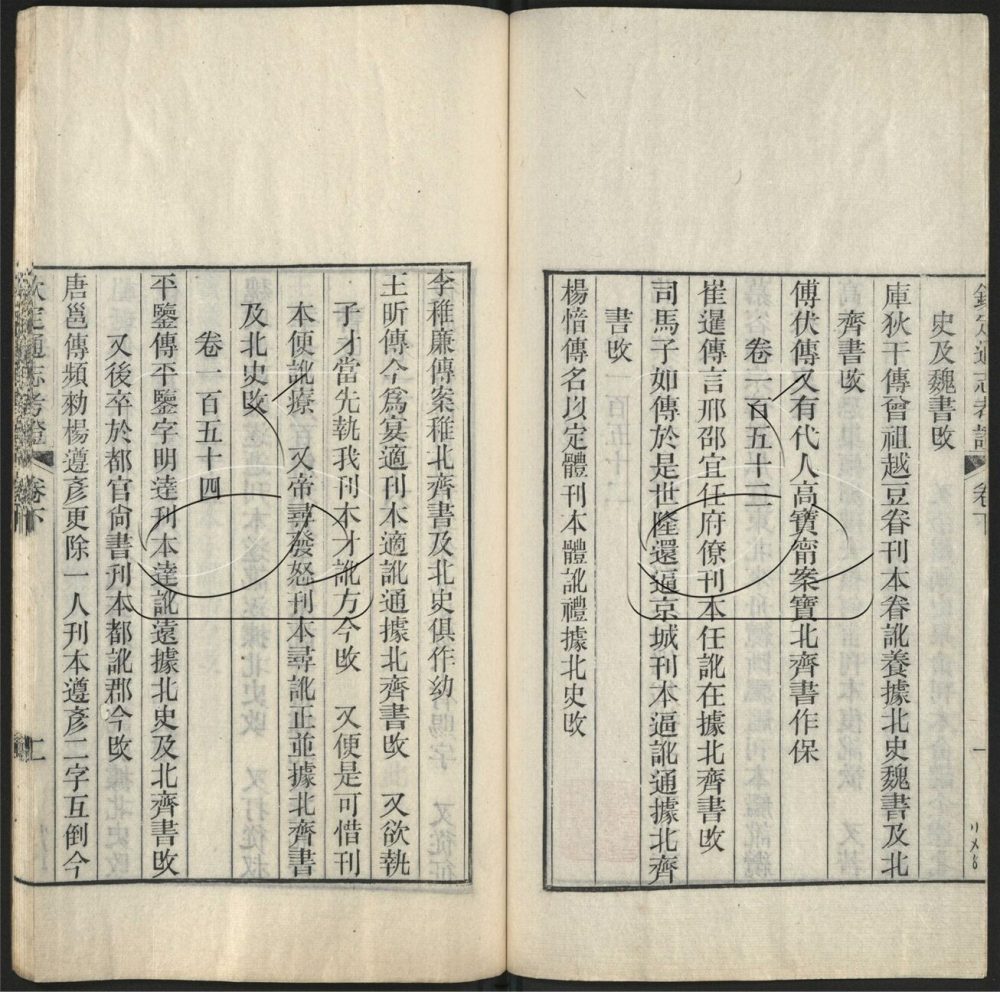 欽定通志考證 卷下
史及魏書改
庫狄干傳曾祖越豆眷刊本眷訛養據北史魏書及北
齊書改
傅伏傳又有代人高寶甯案寶北齊書作保
卷一百五十三
崔暹傳言邢邵宜任府僚刊本任訛在據北齊書改
司馬子如傳於是世隆還逼京城刊本逼訛通據北齊
書改
楊愔傳名以定體刊本體訛禮據北史改
李稚廉傳案稚北齊書及北史俱作幼
王昕傳今爲宴適刊本適訛通據北齊書改 又欲執
子才當先執我刊本才訛方今改 又便是可惜刊
本便訛療 又帝尋發怒刊本尋訛正並據北齊書
及北史改
卷一百五十四
平鑒傳平鑒字明達刊本達訛遠據北史及北齊書改
又後卒於都官尚書刊本都訛郡今改
唐邕傳頻勑楊遵彥更除一人刊本遵彥二字互倒今
欽定通志考證 卷下